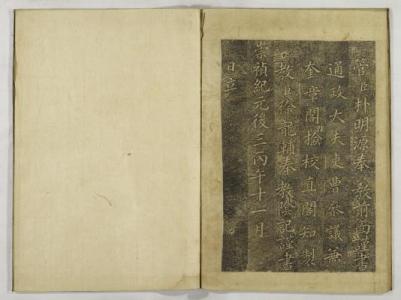 管臣朴明源奉教前面謹書
通政大夫吏曹參議兼
奎章閣檢校直閣知製
教臣徐龍輔奉教陰記謹書
崇禎紀元後三丙午十一月
日立